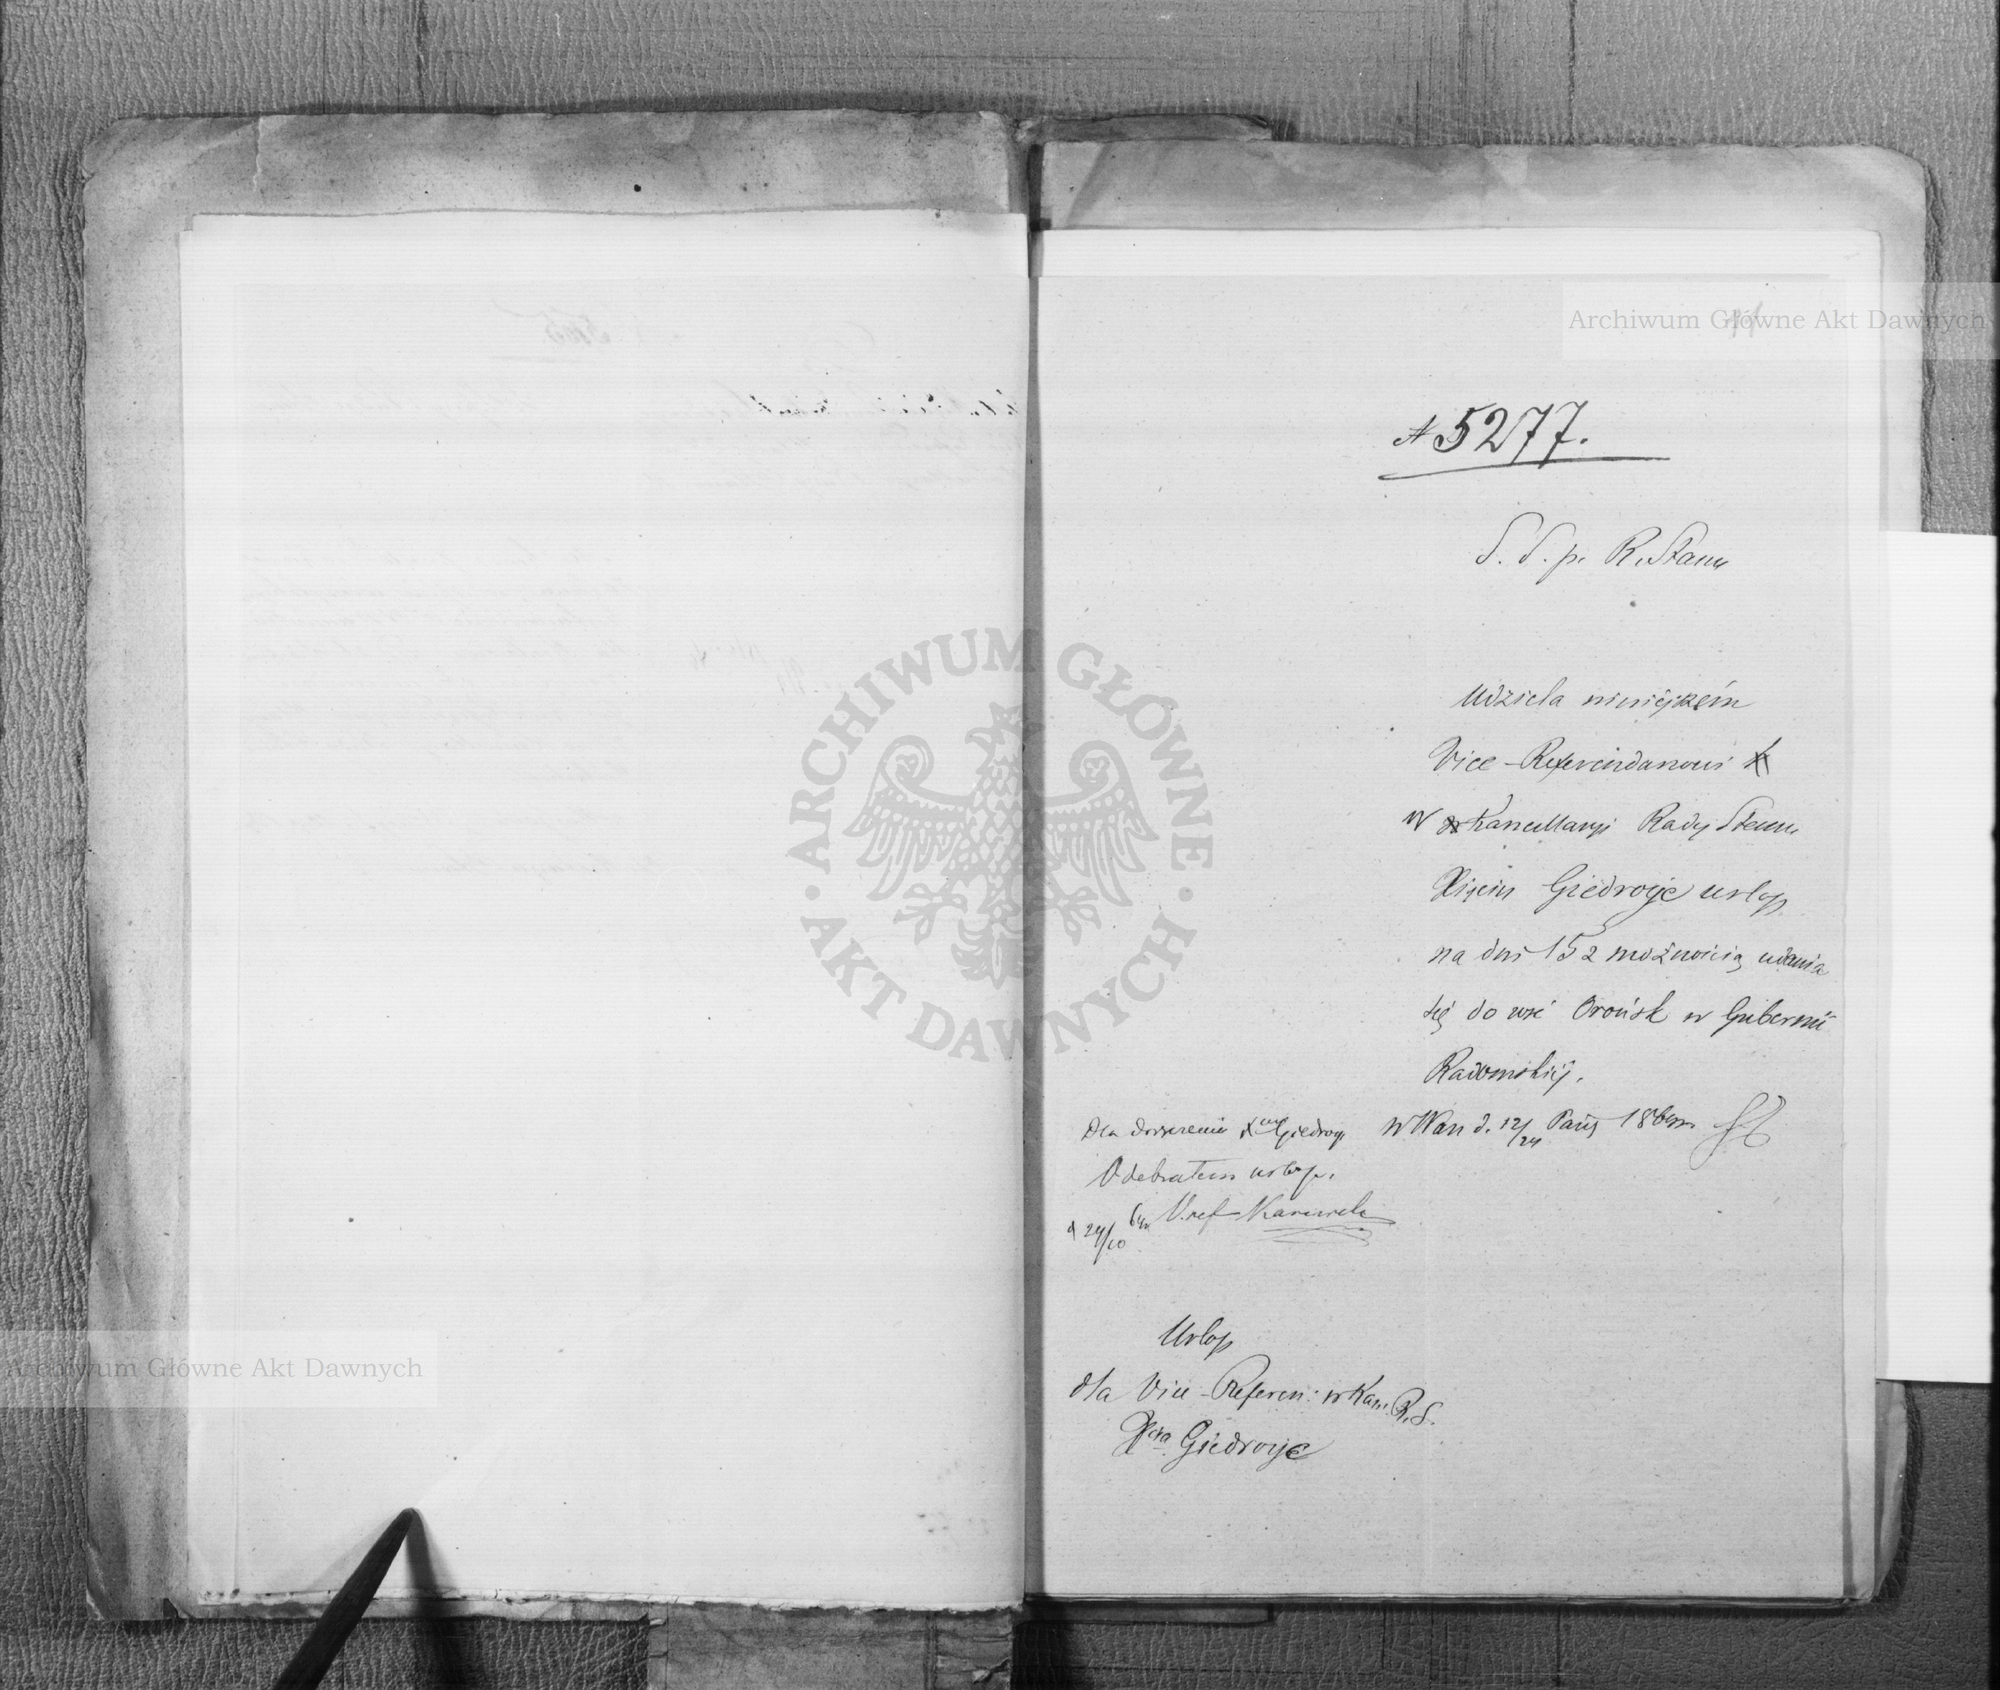 Archiwum Główne Akt Dawnych
№ 5277.
S. S. p. R. Stanu
Udziela niniejszém
Vice-Referendarzowi
w Kancellaryi Rady Stanu
Xięciu Giedroyc urlop
na dni 15 z możnością udania
się do wsi Orońsk w Gubernii
Radomskiéj.
w War d. 12/24 Paźź 186
Dla doręczenia Xciu Giedroyc
Odebrałem urlop.
d 24/10 64 V. ref
Urlop
dla Vice-Referen: w Kan. R. S.
Xcia Giedroyc
ARCHIWUM GŁÓWNE · AKT DAWNYCH ·
Archiwum Główne Akt Dawnych